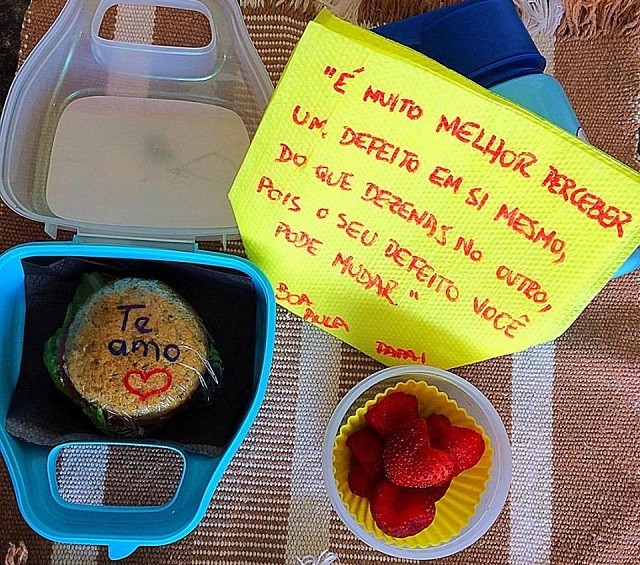 "É MUITO MELHOR PERCEBER
UM DEFEITO EM SI MESMO,
DO QUE DEZENAS NO OUTRO,
POIS O SEU DEFEITO VOCÊ
PODE MUDAR"
BOA
AULA PAPAI
Te
amo